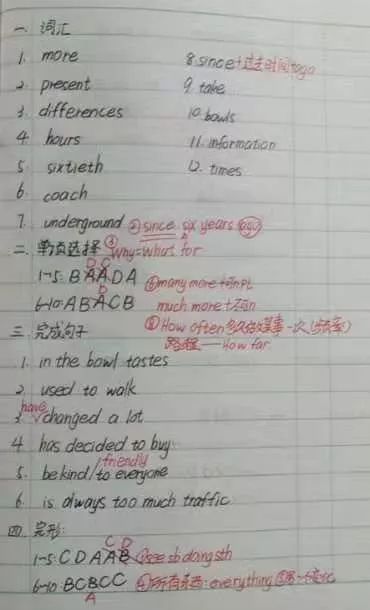 一、词汇
1. more 8. since+过去时间 ago
2. present 9. take
3. differences 10. bowls
4. hours 11. information
5. sixtieth 12. times
6. coach
7. underground ②since six years ago
二、单项选择 ③why=what for
D C
1-5: B A A D A ⑥many more+可n PL
D
6-10: A B A C B much more+不可n
三、完成句子 ⑧How often多久做某事一次(频率)
路程——How far
1. in the bowl tastes
2. used to walk
have
3. changed a lot
4. has decided to buy
friendly
5. be kind/to everyone
6. is always too much traffic
四、完形:
C D
1-5: C D A A B ④see sb doing sth
6-10: B C B C C ⑥所有东西: everything
A